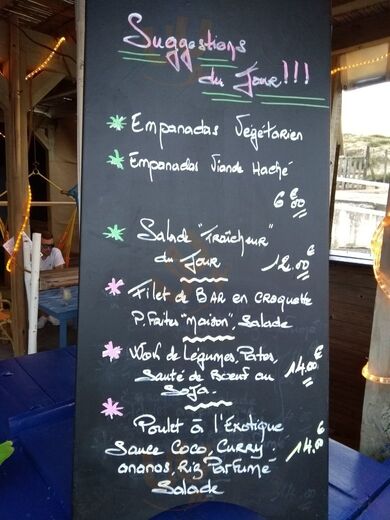 Suggestions
du Jour!!!
Empanadas Végétarien
Empanadas Viande Haché
6€00
Salade "Fraîcheur"
du Jour 12.00€
Filet de BAR en croquette
P. Frites "Maison", Salade
Wok de Légumes, Patas, 14.00€
Sauté de Bœuf au
Soja.
Poulet à l'Exotique
Sauce Coco, Curry. 14.00€
ananas, Riz Parfumé
Salade